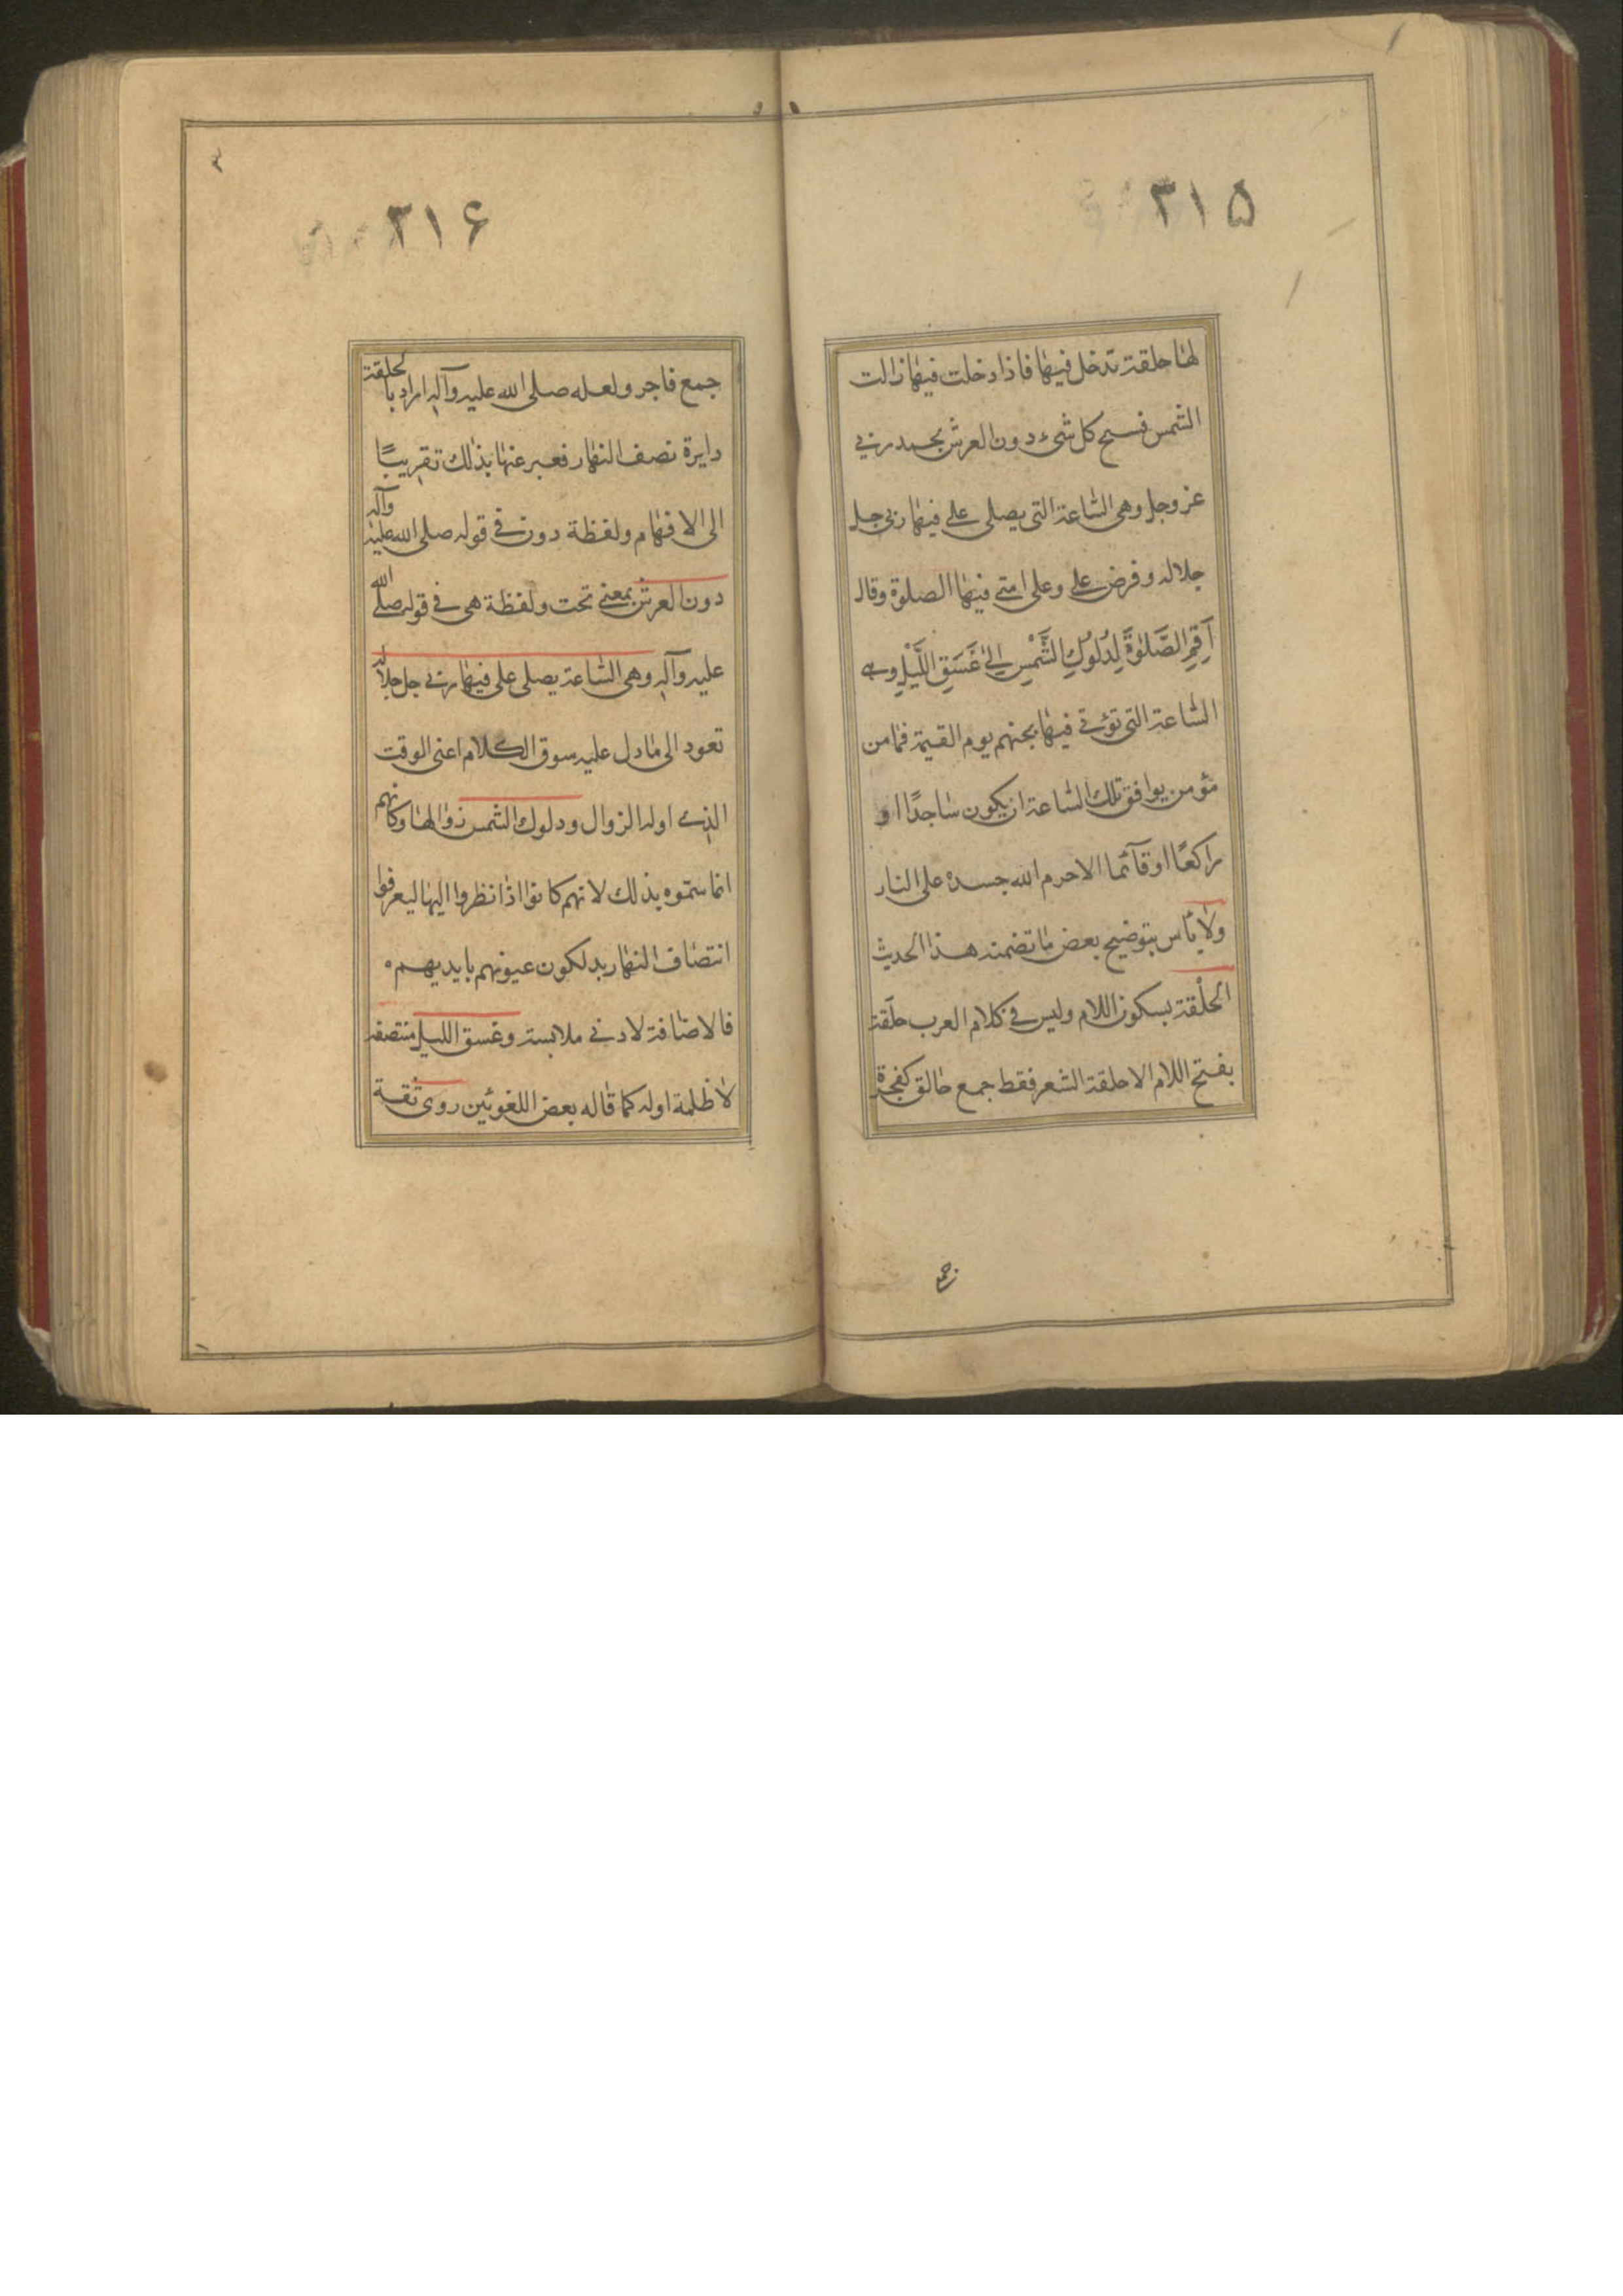 ٣١۵
لها حلقة تدخل فيها فاذا دخلت فيها زالت
الشمس فسبح كل شیء دون العرش بحمد ربي
عز وجل وهى الساعة التى يصلى على فيها ربى جل
جلاله وفرض على وعلى امتى فيها الصلوة وقال
اَقِمِ الصَّلٰوةَ لِدُلُوكِ الشَّمْسِ اِلیٰ غَسَقِ اللَّیْلِ وهى
الساعة التى تؤتى فيها بجهنم يوم القيمة فما من
مؤمن يوافق تلك الساعة ان يكون ساجدًا او
راكعًا او قآئما الا حرم الله جسده على النار
ولا بأس بتوضيح بعض ما تضمنه هذا الحديث
الحلْقة بسكون اللام وليس في كلام العرب حلَقة
بفتح اللام الا حلقة الشعر فقط جمع حالق كفجرة
٣١۶
جمع فاجر ولعله صلى الله عليه وآله اراد بالحلقة
دايرة نصف النهار فعبر عنها بذلك تقريبًا
الى الافهام ولفظة دون فى قوله صلى الله عليه وآله
دون العرش بمعنى تحت ولفظة هى فى قوله صلى الله
عليه وآله وهى الساعة يصلى على فيها ربي جل جلاله
تعود الى ما دل عليه سوق الكلام اعنى الوقت
الذے اوله الزوال ودلوك الشمس زوالها وكانهم
انما سموه بذلك لانهم كانوا اذا نظروا اليها ليعرفوا
انتصاف النهار يدلكون عيونهم بايديهم
فالاضافة لادنى ملابسة وغسق الليل منتصفه
لا ظلمة اوله كما قاله بعض اللغوئين روى ثقة